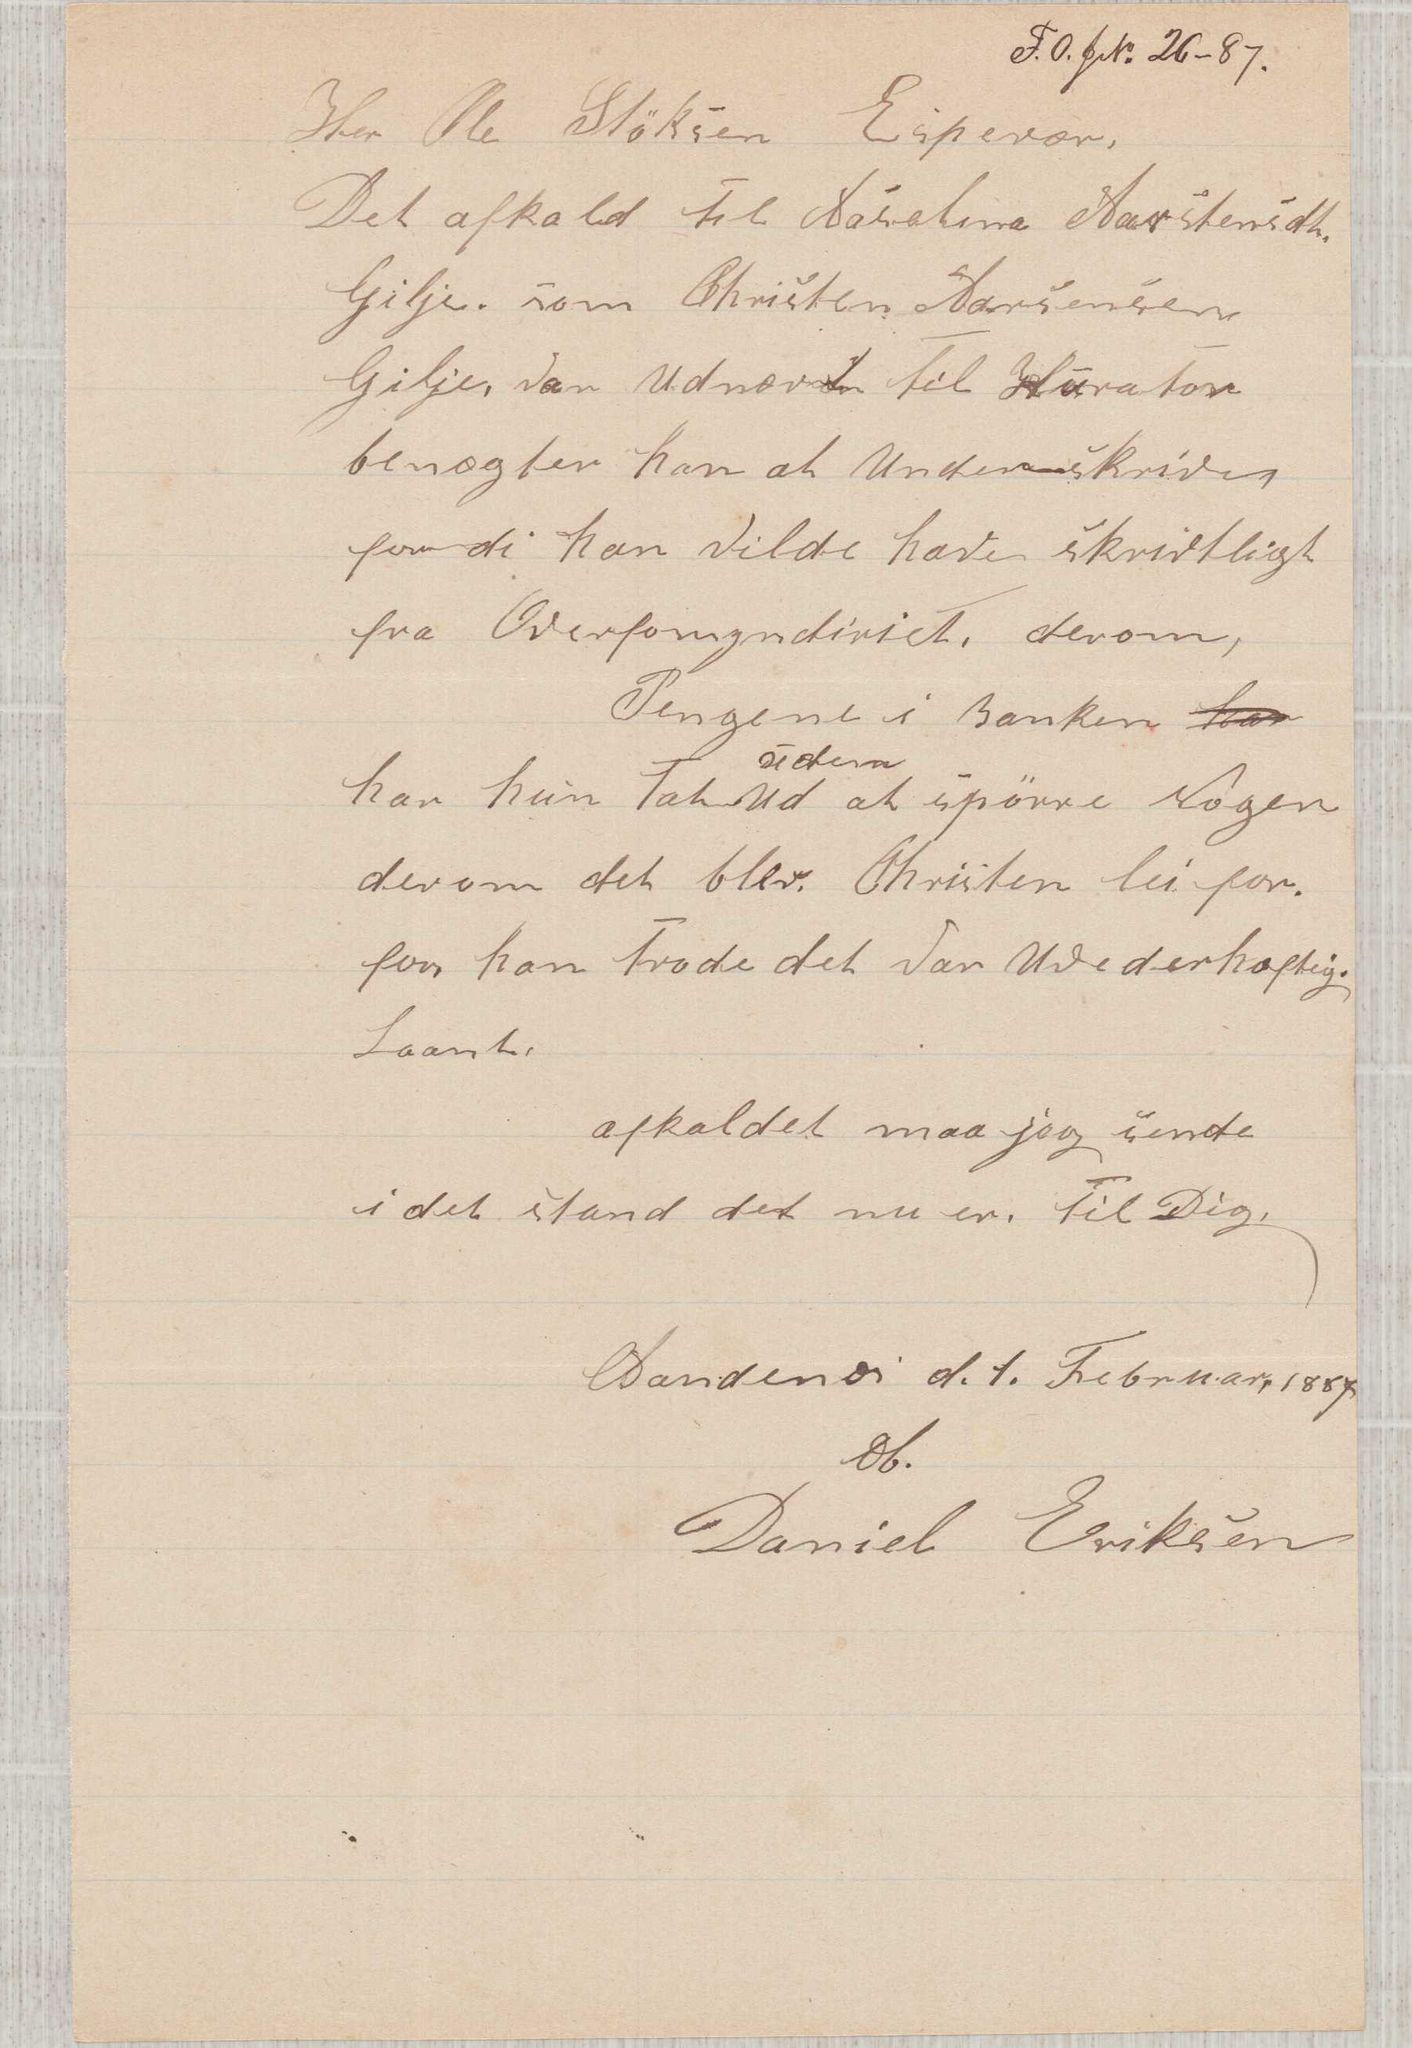 F.O. jN. 26-87.
Her Ole Stöksen Espevær.
Det afkald til Aaselina Aarstensdt.
Gilje. som Christen Aarsensen
Gilje, var Udnævn til Kurator
benægter han at Underskrive,
fordi han vilde have skrivtligt
fra Overformyndiriet. derom,
Pengene i Banken
har hun Tat Ud uden at spörre Nogen
derom det blev. Christen lei for.
for han Trode det var Uvederhæftig.
Laant.
afkaldet maa jeg sende
i det stand det nu er. til Dig.
d. 1. Februar, 1887
Db.
Daniel Eriksen